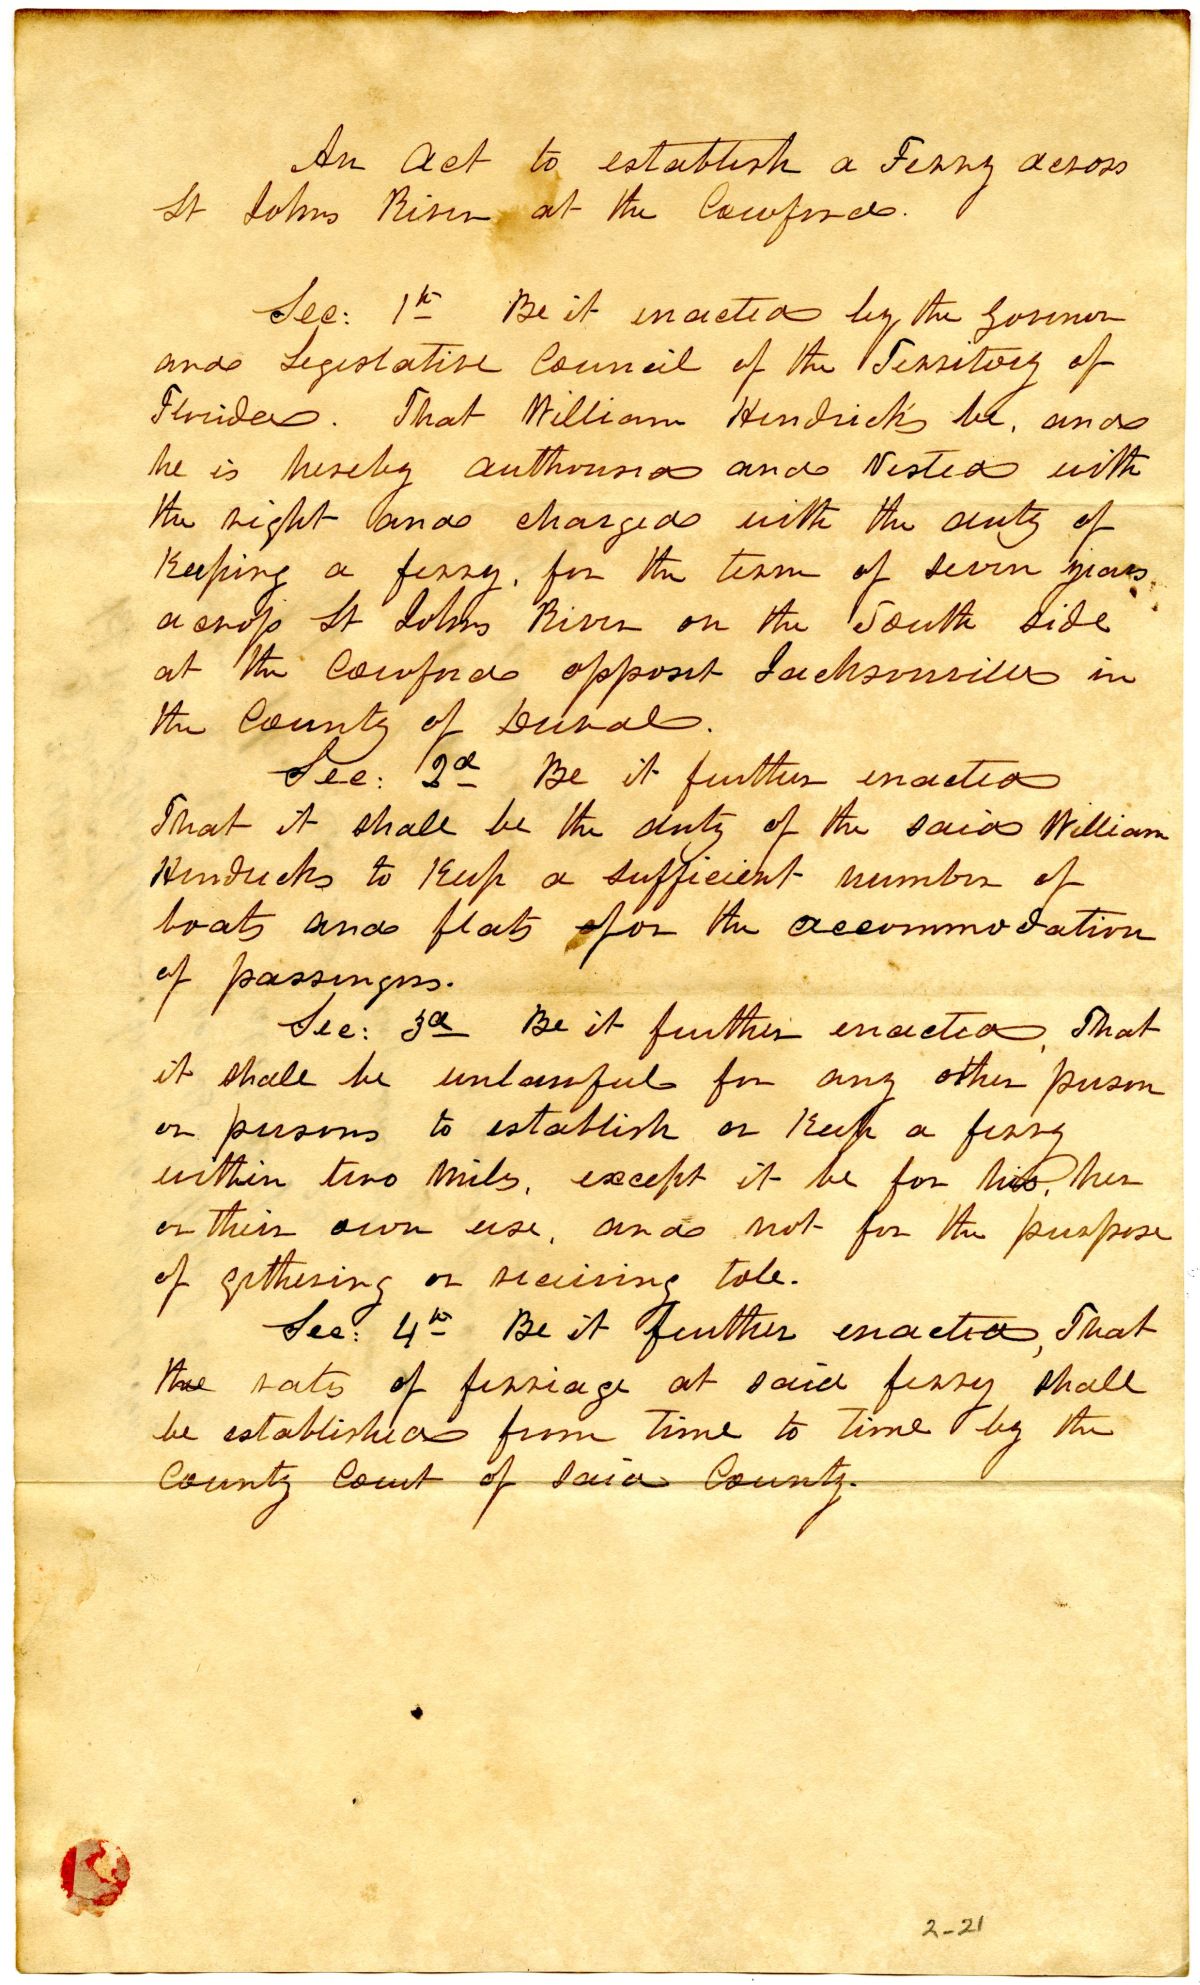 An Act to establish a Ferry across
St Johns River at the Cowford.
Sec: 1st Be it enacted by the Govenor
and Legislative Council of the Territory of
Florida. That William Hendricks be, and
he is hereby authorised and Vested with
the right and charged with the duty of
Keeping a ferry, for the term of seven years,
across St Johns River on the South side
at the Cowford opposit Jacksonville in
the County of Duval.
Sec: 2d Be it further enacted
That it shall be the duty of the said William
Hendricks to Keep a sufficient number of
boats and flats for the accommodation
of passengers.
Sec: 3d Be it further enacted, That
it shall be unlawful for any other person
or persons to establish or Keep a ferry
within two Miles, except it be for his, her
or their own use, and not for the purpose
of gethering or receiving tole.
Sec: 4th Be it further enacted, That
the rates of ferriage at said ferry shall
be established from time to time by the
County Court of said County.
2-21